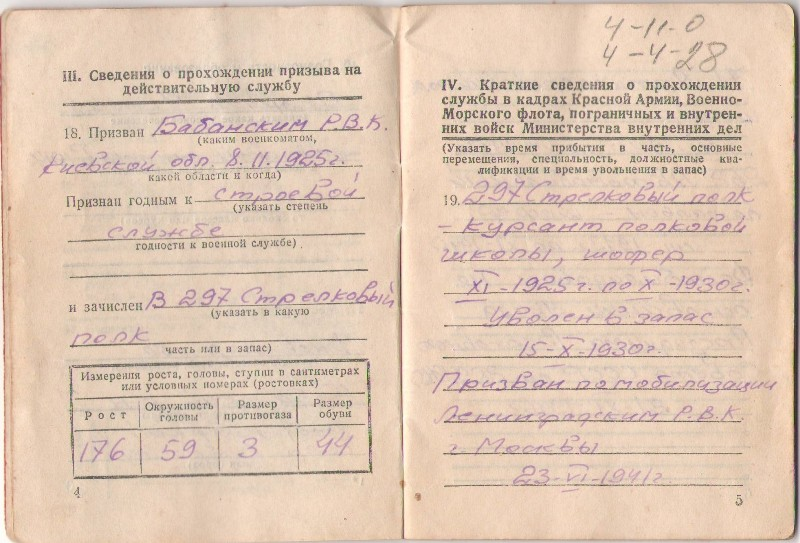 III. Сведения о прохождении призыва на
действительную службу
18. Призван Бабанским Р.В.К.
(каким военкоматом,
Киевской обл. 8.11.1925г.
какой области и когда)
Признан годным к строевой
(указать степень
службе
годности к военной службе)
и зачислен В 297 Стрелковый
(указать в какую
полк
часть или в запас)
Измерения роста, головы, ступни в сантиметрах
или условных номерах (ростовках)
Рост Окружность головы Размер противогаза Размер обуви
176 59 3 44
4
4-11-0
4-4-28
IV. Краткие сведения о прохождении
службы в кадрах Красной Армии, Военно-
Морского флота, пограничных и внутрен-
них войск Министерства внутренних дел
(Указать время прибытия в часть, основные
перемещения, специальность, должностные ква-
лификации и время увольнения в запас)
19. 297 Стрелковый полк
- курсант полковой
школы, шофер
XI-1925г. по X-1930г.
Уволен в запас
15-X-1930г.
Призван по мобилизации
Ленинградским Р.В.К.
г. Москвы
23-VI-1941г.
5